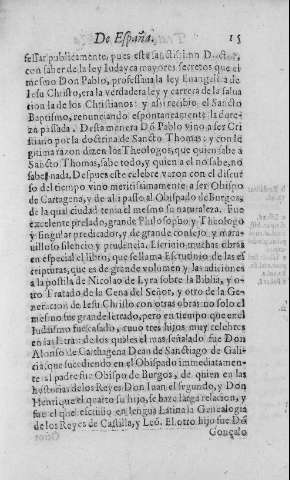 De España. 15
fessar publicamente, pues este sanctissimo Doctor,
con saber de la ley Iudayca mayores secretos que el
mesmo Don Pablo, professaua la ley Euangelica de
Iesu Christo, era la verdadera ley y carrera de la salua
cion la de los Christianos: y assi recibio el Sancto
Baptismo, renunciando espontaneamente la dure-
za passada. Desta manera Dō Pablo vino a ser Cri
stiano por la doctrina de Sancto Thomas: y con le
gitima razon dizen los Theologos, que quien sabe a
Sancto Thomas, sabe todo, y quien a el no sabe, no
sabe nada. Despues este celebre varon con el discur
so del tiempo vino meritissimamente a ser Obispo
de Cartagena, y de alli passo al Obispado de Burgos,
de la qual ciudad tenia el mesmo su naturaleza. Fue
excelente prelado, grande Philosopho y Theologo
y singular predicador, y de grande consejo y mara-
uilloso silencio y prudencia. Escriuio muchas obras
en especial el libro, que se llama Escrutinio de las es
cripturas, que es de grande volumen y las adiciones
a la postila de Nicolao de Lyra sobre la Biblia, y o-
tro Tratado de la Cena del Señor, y otro de la Ge-
neracion de Iesu Christo con otras obras: no solo el
mesmo fue grande letrado, pero en tiempo que en el
Iudaismo fue casado, cuuo tres hijos muy celebres
en las letras: de los quales el mas señalado fue Don
Alonso de Carthagena Dean de Sanctiago de Gali-
cia, que sucediendo en el Obispado immediatamen-
te al padre fue Obispo de Burgos, de quien en las
historias de los Reyes Don Iuan el segundo, y Dōn
Henrique el quarto su hijo, se haze larga relacion, y
fue el que escriuio en lengua Latina la Genealogia
de los Reyes de Castilla, y Leō. El otro hijo fue Dō
Gonçalo